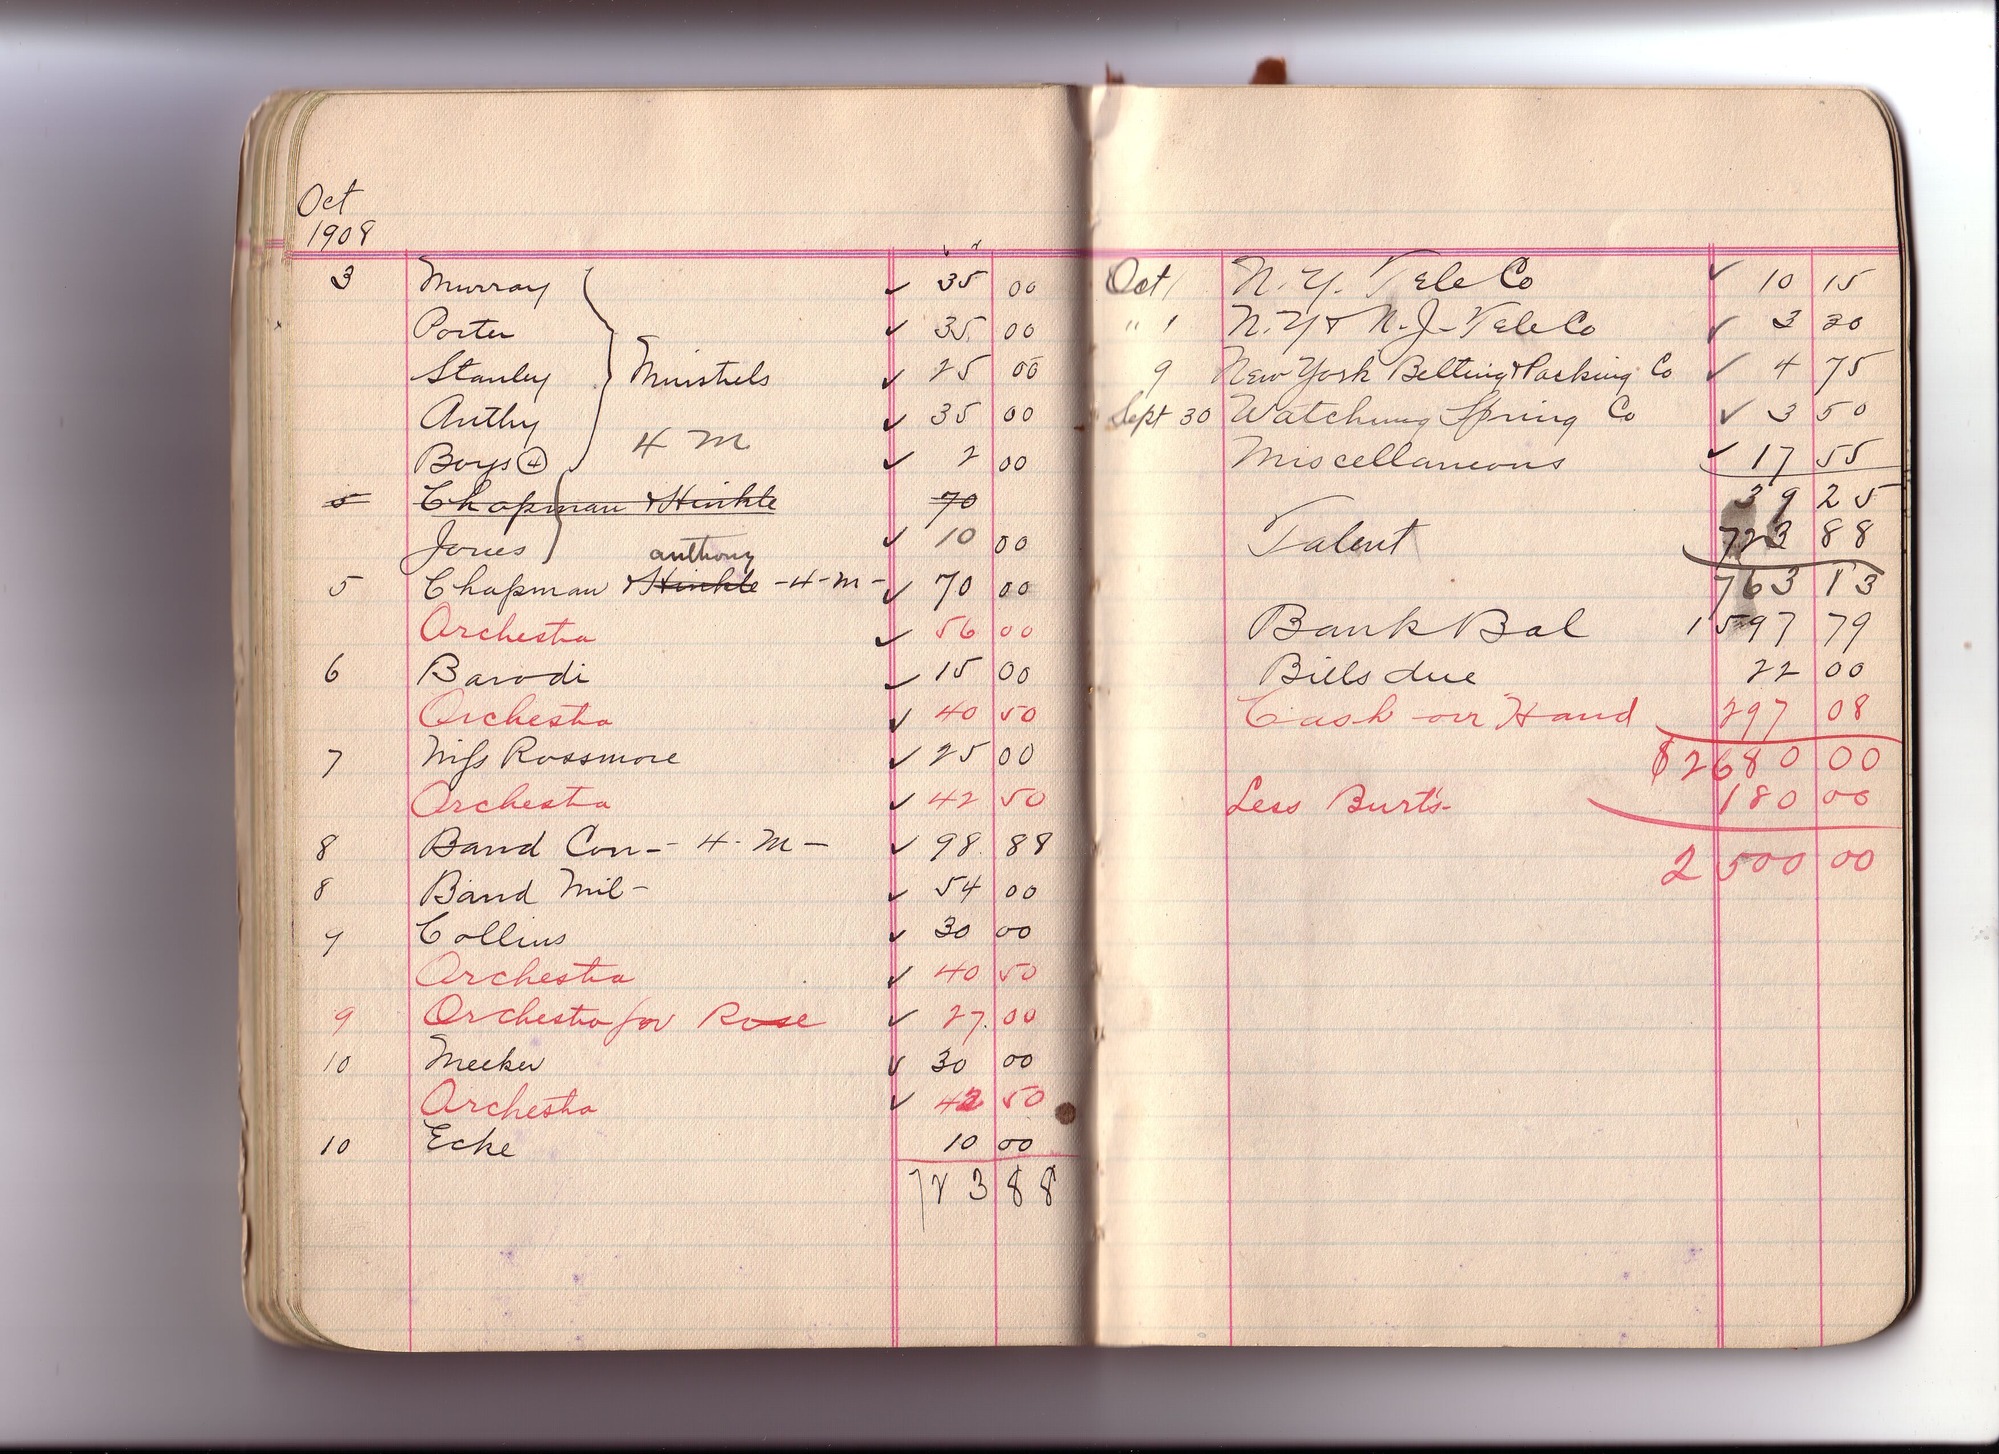 Oct
1908
3 Murray ✓ 35 00
Porter ✓ 35 00
Stanley Minstrels ✓ 25 00
Anthy ✓ 35 00
Boys ④ 4 M ✓ 2 00
5 Chapman & Hinkle 70
Jones ✓ 10 00
anthony
5 Chapman & Hinkle - 4 - M - ✓ 70 00
Orchestra ✓ 56 00
6 Barodi ✓ 15 00
Orchestra ✓ 40 50
7 Miss Rossmore ✓ 25 00
Orchestra ✓ 42 50
8 Band Con - 4 - M - ✓ 98 88
8 Band Mil - ✓ 54 00
9 Collins ✓ 30 00
Orchestra ✓ 40 50
9 Orchestra for Rose ✓ 27 00
10 Meeker ✓ 30 00
Orchestra ✓ 42 50
10 Ecke 10 00
723 88
Oct 1 N. Y. Tele Co ✓ 10 15
" 1 N. Y & N. J - Tele Co ✓ 3 30
9 New York Belting & Packing Co ✓ 4 75
Sept 30 Watchung Spring Co ✓ 3 50
Miscellaneous ✓ 17 55
39 25
Talent 723 88
763 13
Bank Bal 1597 79
Bills due 22 00
Cash on Hand 297 08
$2680 00
Less Burt's - 180 00
2500 00